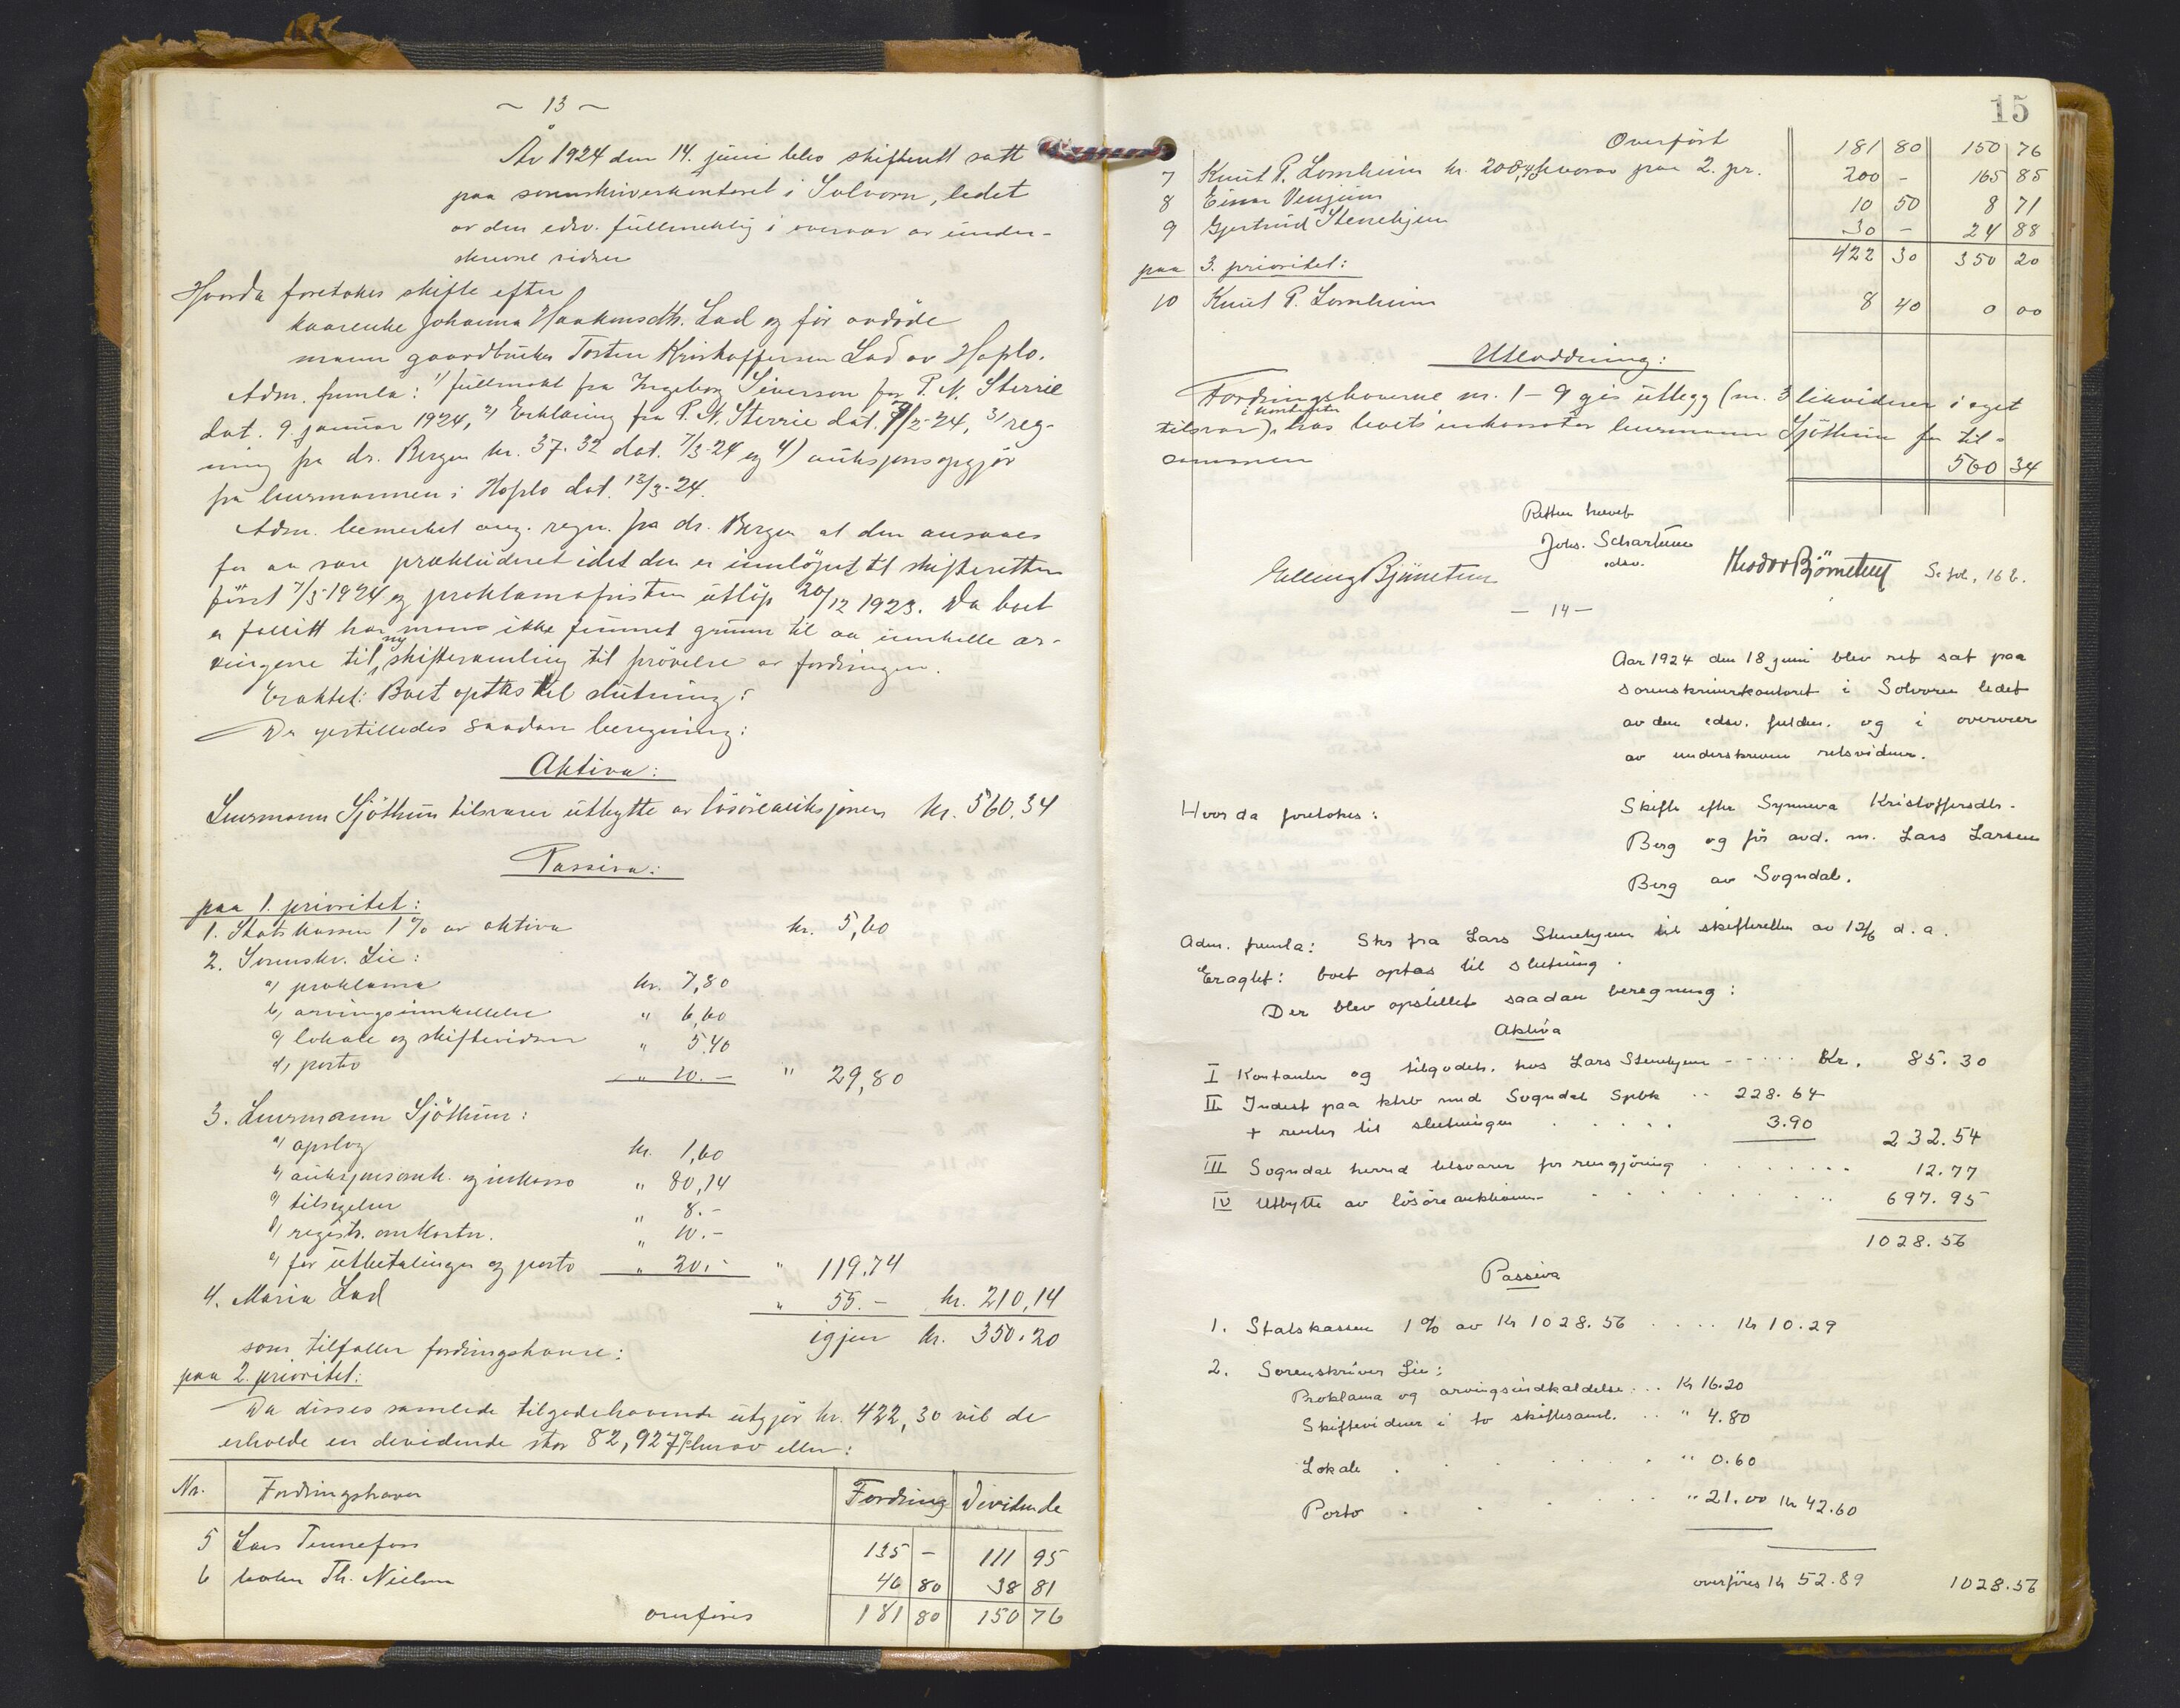 ~ 13 ~
År 1924 den 14. juni blev skifterett satt
paa sorenskriverkontoret i Solvorn, ledet
av den edsv. fullmektig i overvær av under-
skrevne vidner
Hvorda foretokes skifte efter
kaarenke Johanna Haakonsdtr. Lad og før avdøde
mann gaardbruker Torsten Kristoffersen Lad av Hafslo.
Adm. fremla: 1) fullmakt fra Ingeborg Siverson for P. N. Sterrie
dat. 9. januar 1924, 2) Erklæring fra P. N. Sterrie dat. 7/2-24, 3) reg-
ning fra dr. Bergen kr. 37.32 dat. 7/3-24 og 4) auksjonsopgjør
fra lensmannen i Hafslo dat. 12/3-24.
Adm. bemerket ang. regn. fra dr. Bergen at den ansaaes
for aa være prækludert idet den er innløpet til skifteretten
først 7/3-1924 og proklamafristen utløp 20/12 1923. Da boet
er fallitt har man ikke funnet grunn til aa innkalle ar-
vingene til ny skiftesamling til prøvelse av fordringen.
Eraktet: Boet optas til slutning:
Der opstilledes saadan beregning:
Aktiva:
Lensmann Sjøthun tilsvarer utbytte av løsøreauksjonen kr. 560.34
Passiva:
paa 1. prioritet:
1. Statskassen 1% av aktiva kr. 5,60
2. Sorenskr. Lie:
a) proklama kr. 7,80
b) arvingsinnkallelse " 6,60
c) lokale og skiftevidner " 5.40
d) porto " 10.- " 29,80
3. Lensmann Sjøthun:
a) opslag kr. 1,60
b) auksjonsomk. og inkasso " 80,14
c) tilsigelser " 8.-
d) registr. omkostn. " 10.-
e) for utbetalinger og porto " 20.- " 119.74
4. Maria Lad " 55.- kr. 210,14
igjen kr. 350.20
som tilfaller fordringshavere:
paa 2. prioritet:
Da disses samlede tilgodehavende utgjør kr. 422,30 vil de
erholde en dividende stor 82,927% herav eller:
Nr. Fordringshaver Fordring Dividende
5 Lars Tennefoss 135 - 111 95
6 Th. Nielsen 46 80 38 81
overføres 181 80 150 76
15
Overført 181 80 150 76
7 Knut P. Lomheim kr. 208,40 hvorav paa 2. pr. 200 - 165 85
8 Einar Venjum 10 50 8 71
9 Gjertrud Stenehjem 30 - 24 88
422 30 350 20
paa 3. prioritet:
10 Knut P. Lomheim 8 40 0 00
Utloddning:
Fordringshaverne nr. 1-9 gis utlegg (nr. 3 likviderer i eget
tilsvar) i kontanter hos boets inkassator lensmann Sjøthun for til-
sammen
560 34
Retten hævet
Johs. Schartum
edsv.
Elling Bjørnetun Theodor Bjørnetun Se fol. 16 b.
- 14 -
Aar 1924 den 18 juni blev ret sat paa
sorenskriverkontoret i Solvorn ledet
av den edsv. fuldm. og i overvær
av underskrevne retsvidner.
Hvorda foretokes: Skifte efter Synneva Kristoffersdtr.
Berg og før avd. m. Lars Larsen
Berg av Sogndal.
Adm. fremla: Skr fra Lars Stenehjem til skifteretten av 12/6 d.a.
Eragtet: boet optas til slutning.
Der blev opstillet saadan beregning:
Aktiva
I Kontanter og tilgodeh. hos Lars Stenehjem - - .... Kr. 85.30
II Indest paa ktrb med Sogndal Spbk .. 228.64
+ renter til slutningen . . . . . 3.90 232.54
III Sogndal herred tilsvarer for rengjøring . . . . . . . 12.77
IV Utbytte av løsøreauktionen . . . . . . .. 697.95
1028.56
Passiva
1. Statskassen 1% av Kr 1028.56 . . . . Kr 10.29
2. Sorenskriver Lie:
Proklama og arvingsindkaldelse . .. Kr 16.20
Skiftevidner i to skiftesaml. .. " 4.80
Lokale . . . . . . . " 0.60
Porto . . . . . . " 21.00 Kr 42.60
overføres Kr 52.89 1028.56